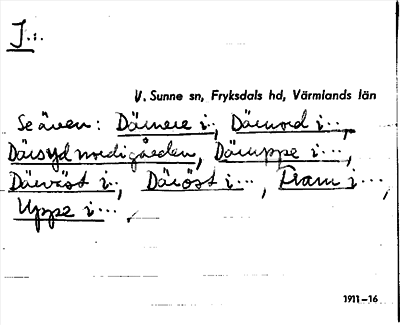 I...
V. Sunne sn, Fryksdals hd, Värmlands län
Se även: Därnere i.., Därnord i...,
Därsyd nordigården, Däruppe i...,
Därväst i.., Däröst i..., Fram i...,
Uppe i....
1911–16